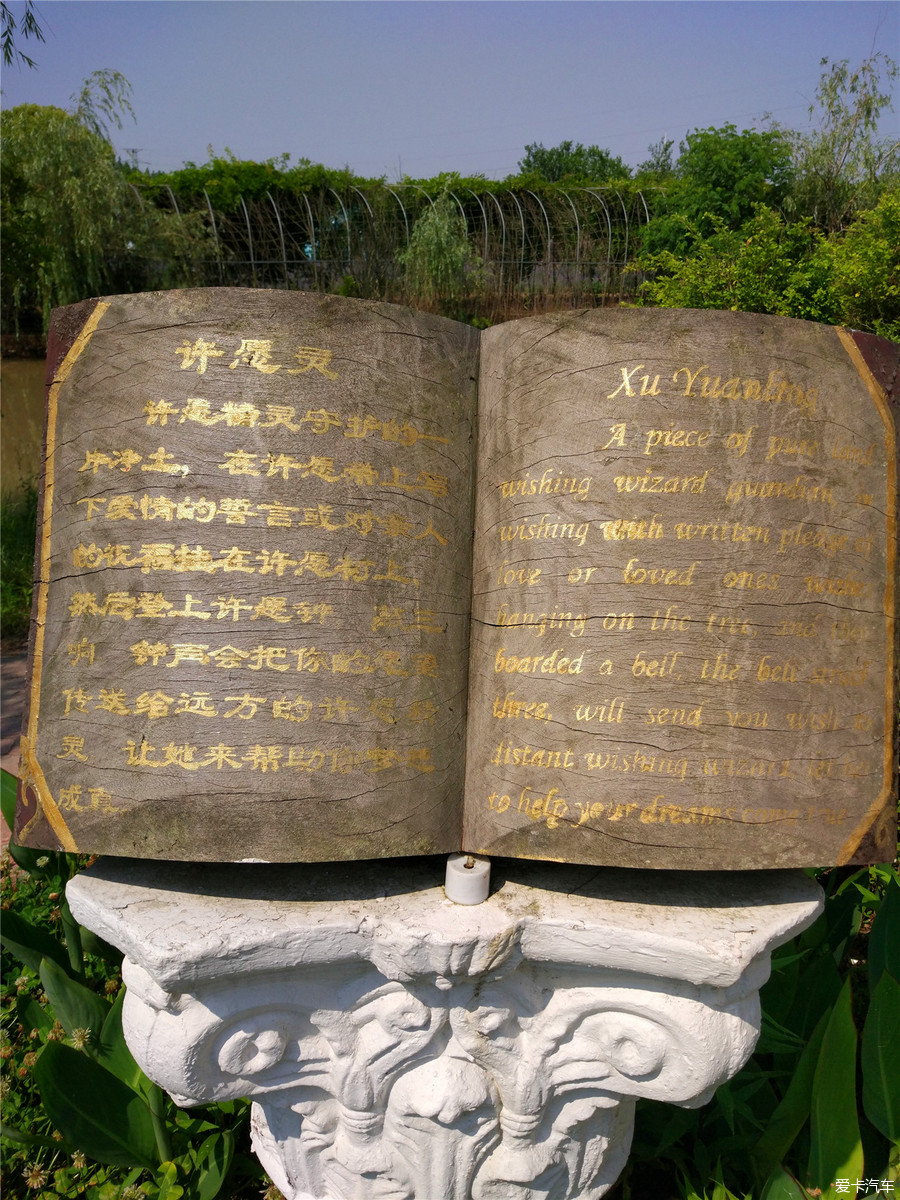 许愿灵
许愿精灵守护的一
片净土，在许愿带上写
下爱情的誓言或对亲人
的祝福挂在许愿树上，
然后登上许愿钟 三
响 钟声会把你的
传送给远方的许愿精
灵 让她来帮助你梦想
成真
Xu Yuanling
A piece of pure land
wishing wizard guardian, in
wishing with written pledge of
love or loved ones wish,
hanging on the tree, and then
boarded a bell, the bell
three, will send you wish to
distant wishing wizard, let her
to help your dreams come true
爱卡汽车